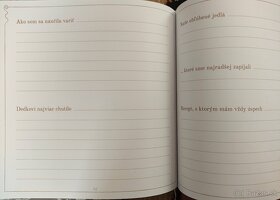 Ako som sa naučila variť
Dedkovi najviac chutilo
Naše obľúbené jedlá
... ktoré sme najradšej zapíjali
Recept, s ktorým mám vždy úspech